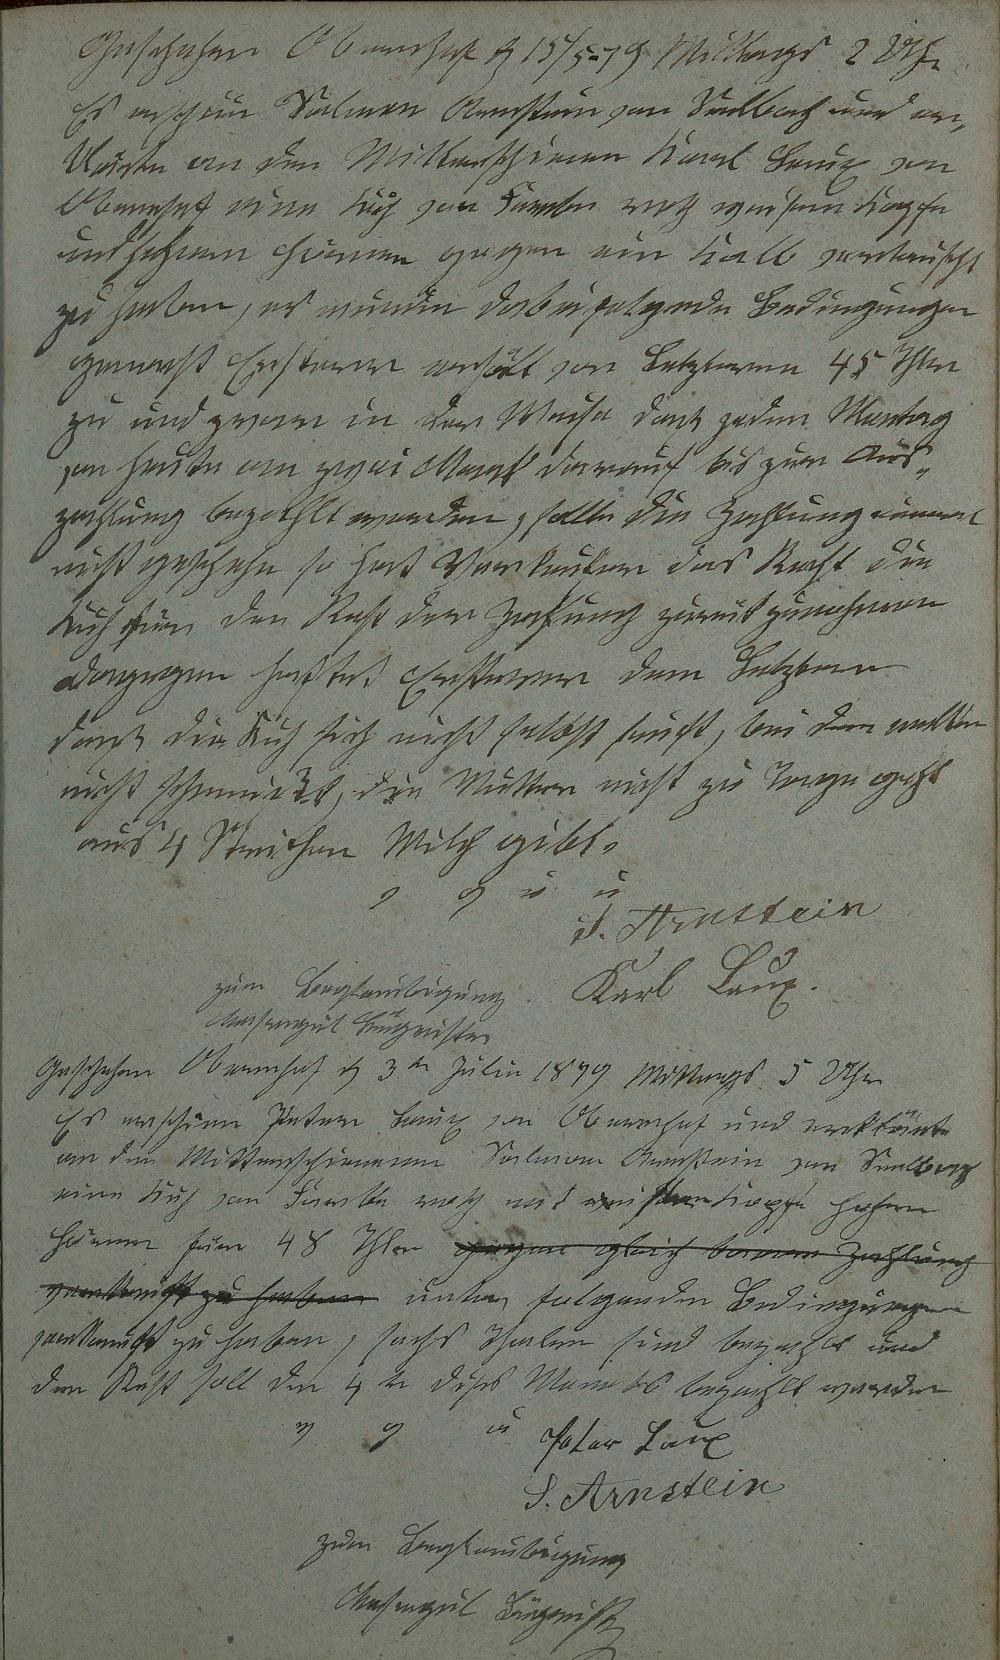 Geschehen Obernhof d 15/5-79 Mittags 2 Uhr
Es erschein Salman Arnstein von Seelbach und er„
klärte an den Mitterscheinen Karl Laux von
Obernhof eine Kuh von Farbe roth weisem Kopfe
und hohem Hörner gegen ein Kalb vertauscht
zu haben, es wurden dabei folgende Bedingungen
gemacht Ersterer erhält von Letzteren 45 Thlr
zu und zwar in der Weise das jeden Montag
von heute an zwei Mark darauf bis zur Aus„
zahlung bezahlt werden, sollte die Zahlung einmal
nicht geschehn so hat Verkäufer das Recht die
Kuh für den Rest der Zahlung zurück zunehmen
dagegen haftet Ersterer dem Letztern
das die Kuh sich nicht selbst sauft, bei dem melken
nicht schmeißt, die Mutter nicht zu Tage geht
aus 4 Strichen Milch gibt.
v g u u
S. Arnstein
Karl Laux.
zur Beglaubigung
Bürgmeister
Geschehen Obernhof d 3ten Julin 1879 Mittags 5 Uhr
Es erschien Peter Laux von Obernhof und erklärte
an den Mitterschienenen Salman Arnstein von Seelbach
eine Kuh von Farbe roth mit weissem Kopfe hohen
Hörner für 48 Thlr gegen gleich barer Zahlung
verkauft zu haben unter folgenden Bedingungen
verkauft zu haben, sechs Thaler sind bezahlt und
der Rest soll den 4ten dises Monats bezahlt werden
v g u
Peter Laux
S. Arnstein
zur Beglaubigung
Bürgmeistr